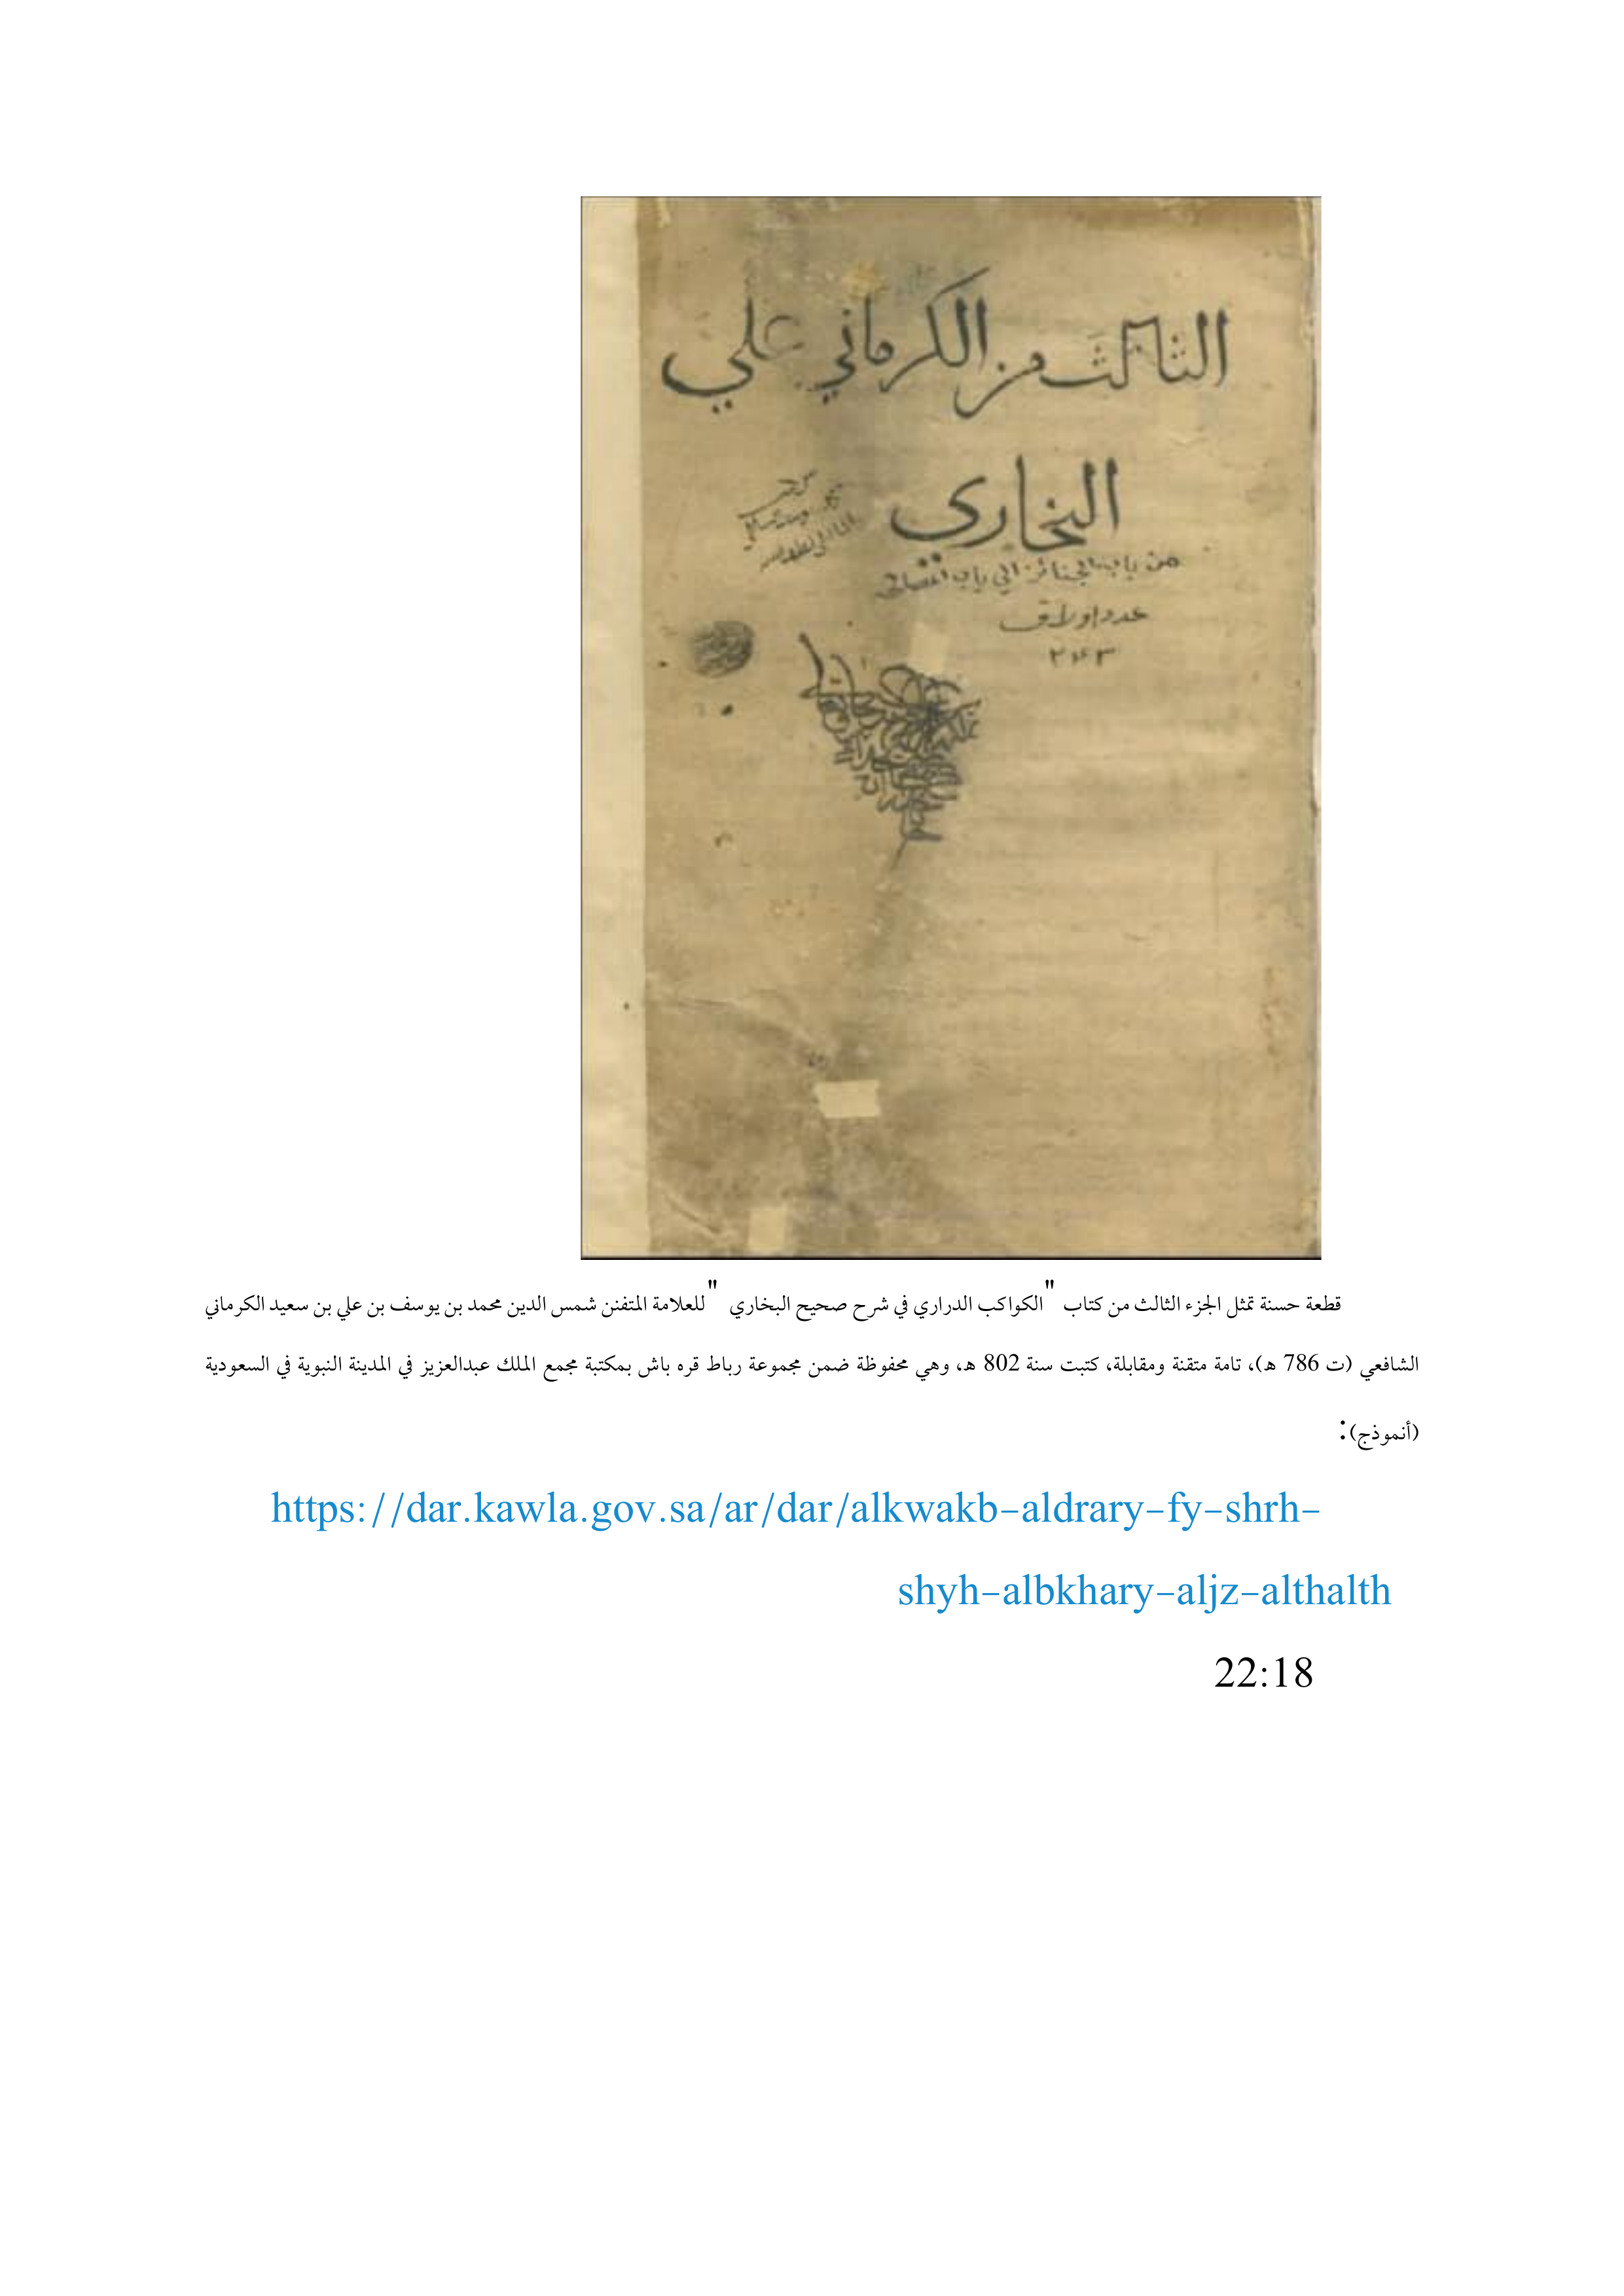 الثالث من الكرماني علي
البخاري
من باب الجنائز الي باب
عدد اوراق
٢٤٣
قطعة حسنة تمثل الجزء الثالث من كتاب "الكواكب الدراري في شرح صحيح البخاري " للعلامة المتفنن شمس الدين محمد بن يوسف بن علي بن سعيد الكرماني
الشافعي (ت 786 ه)، تامة متقنة ومقابلة، كتبت سنة 802 ه، وهي محفوظة ضمن مجموعة رباط قره باش بمكتبة مجمع الملك عبدالعزيز في المدينة النبوية في السعودية
(أنموذج):
https://dar.kawla.gov.sa/ar/dar/alkwakb-aldrary-fy-shrh-
shyh-albkhary-aljz-althalth
22:18